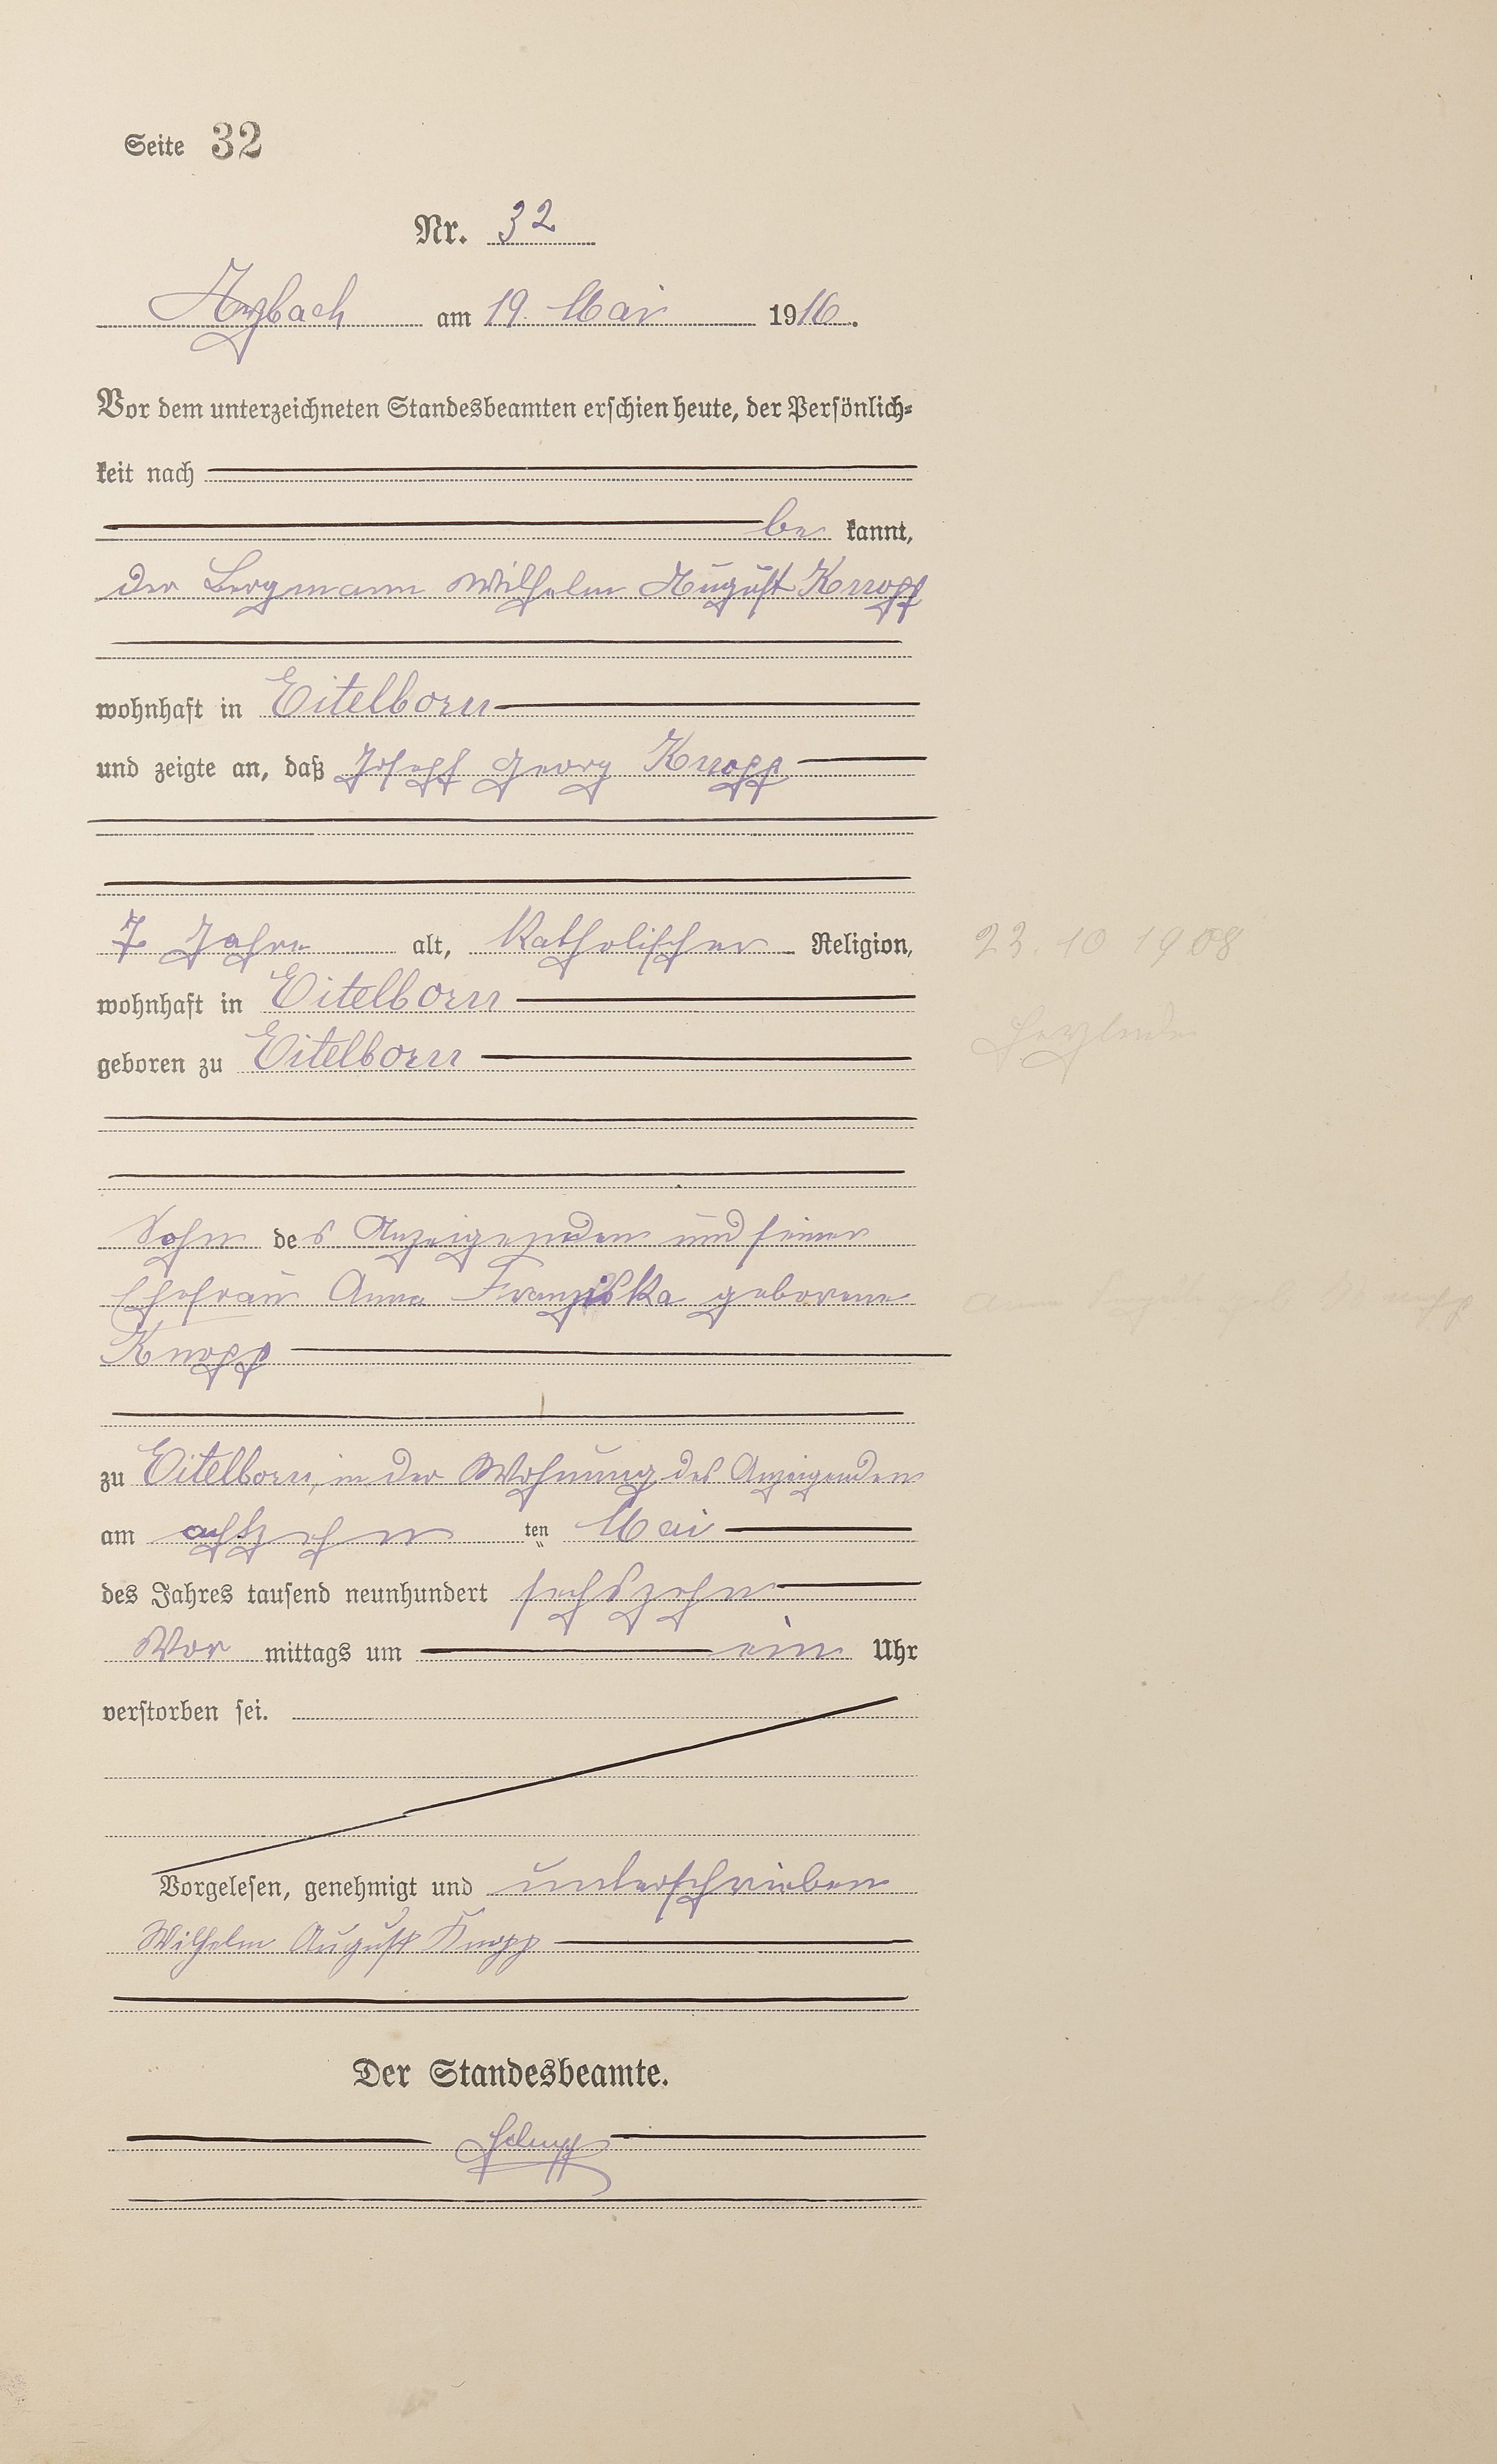 Seite 32
Nr. 32
Arzbach am 19. Mai 1916.
Vor dem unterzeichneten Standesbeamten erschien heute, der Persönlich-
keit nach
be kannt,
der Bergmann Wilhelm August Knopp
wohnhaft in Eitelborn
und zeigte an, daß Joseph Georg Knopp
7 Jahre alt, Katholischer Religion, 23. 10 1908
wohnhaft in Eitelborn
geboren zu Eitelborn
Sohn des Anzeigenden und seiner
Ehefrau Anna Franziska geborene
Knopp
zu Eitelborn, in der Wohnung des Anzeigenden
am achtzehn ten Mai
des Jahres tausend neunhundert sechszehn
Vor mittags um ein Uhr
verstorben sei.
Vorgelesen, genehmigt und unterschrieben
Wilhelm August Knopp
Der Standesbeamte.